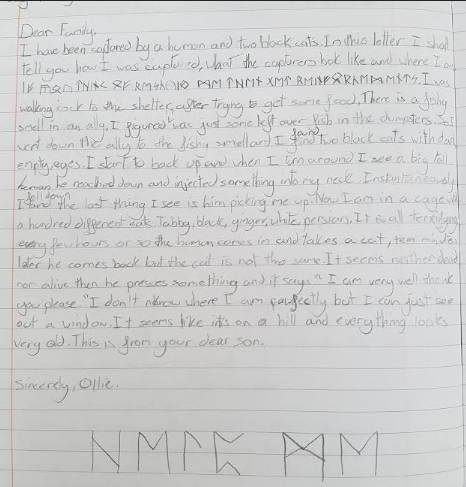 Dear Family,
I have been captured by a human and two black cats. In this letter I shall
tell you how I was captured, what the capturers look like and where I am
I was
walking back to the shelter, after trying to get some food. There is a fishy
smell in an ally, I figured was just some left over fish in the dumpsters. So I
went down the ally to the fishy smell and I found two black cats with dark
empty eyes. I start to back up and when I turn around I see a big tall
human he reached down and injected something into my neck. Instantaneously
I fell down the last thing I see is him picking me up. Now I am in a cage
a hundred different cats. Tabby, black, ginger, white, persian. It is all terrifying
every few hours or so the human comes in and takes a cat, ten minutes
later he comes back but the cat is not the same. It seems neither dead
nor alive then he presses something and it says "I am very well thank
you please." I don't know where I am but I can just see
out a window. It seems like it's on a hill and everything looks
very old. This is from your dear son.
Sincerely, Ollie.
ᚺᛖᛚᛈ ᛗᛖ